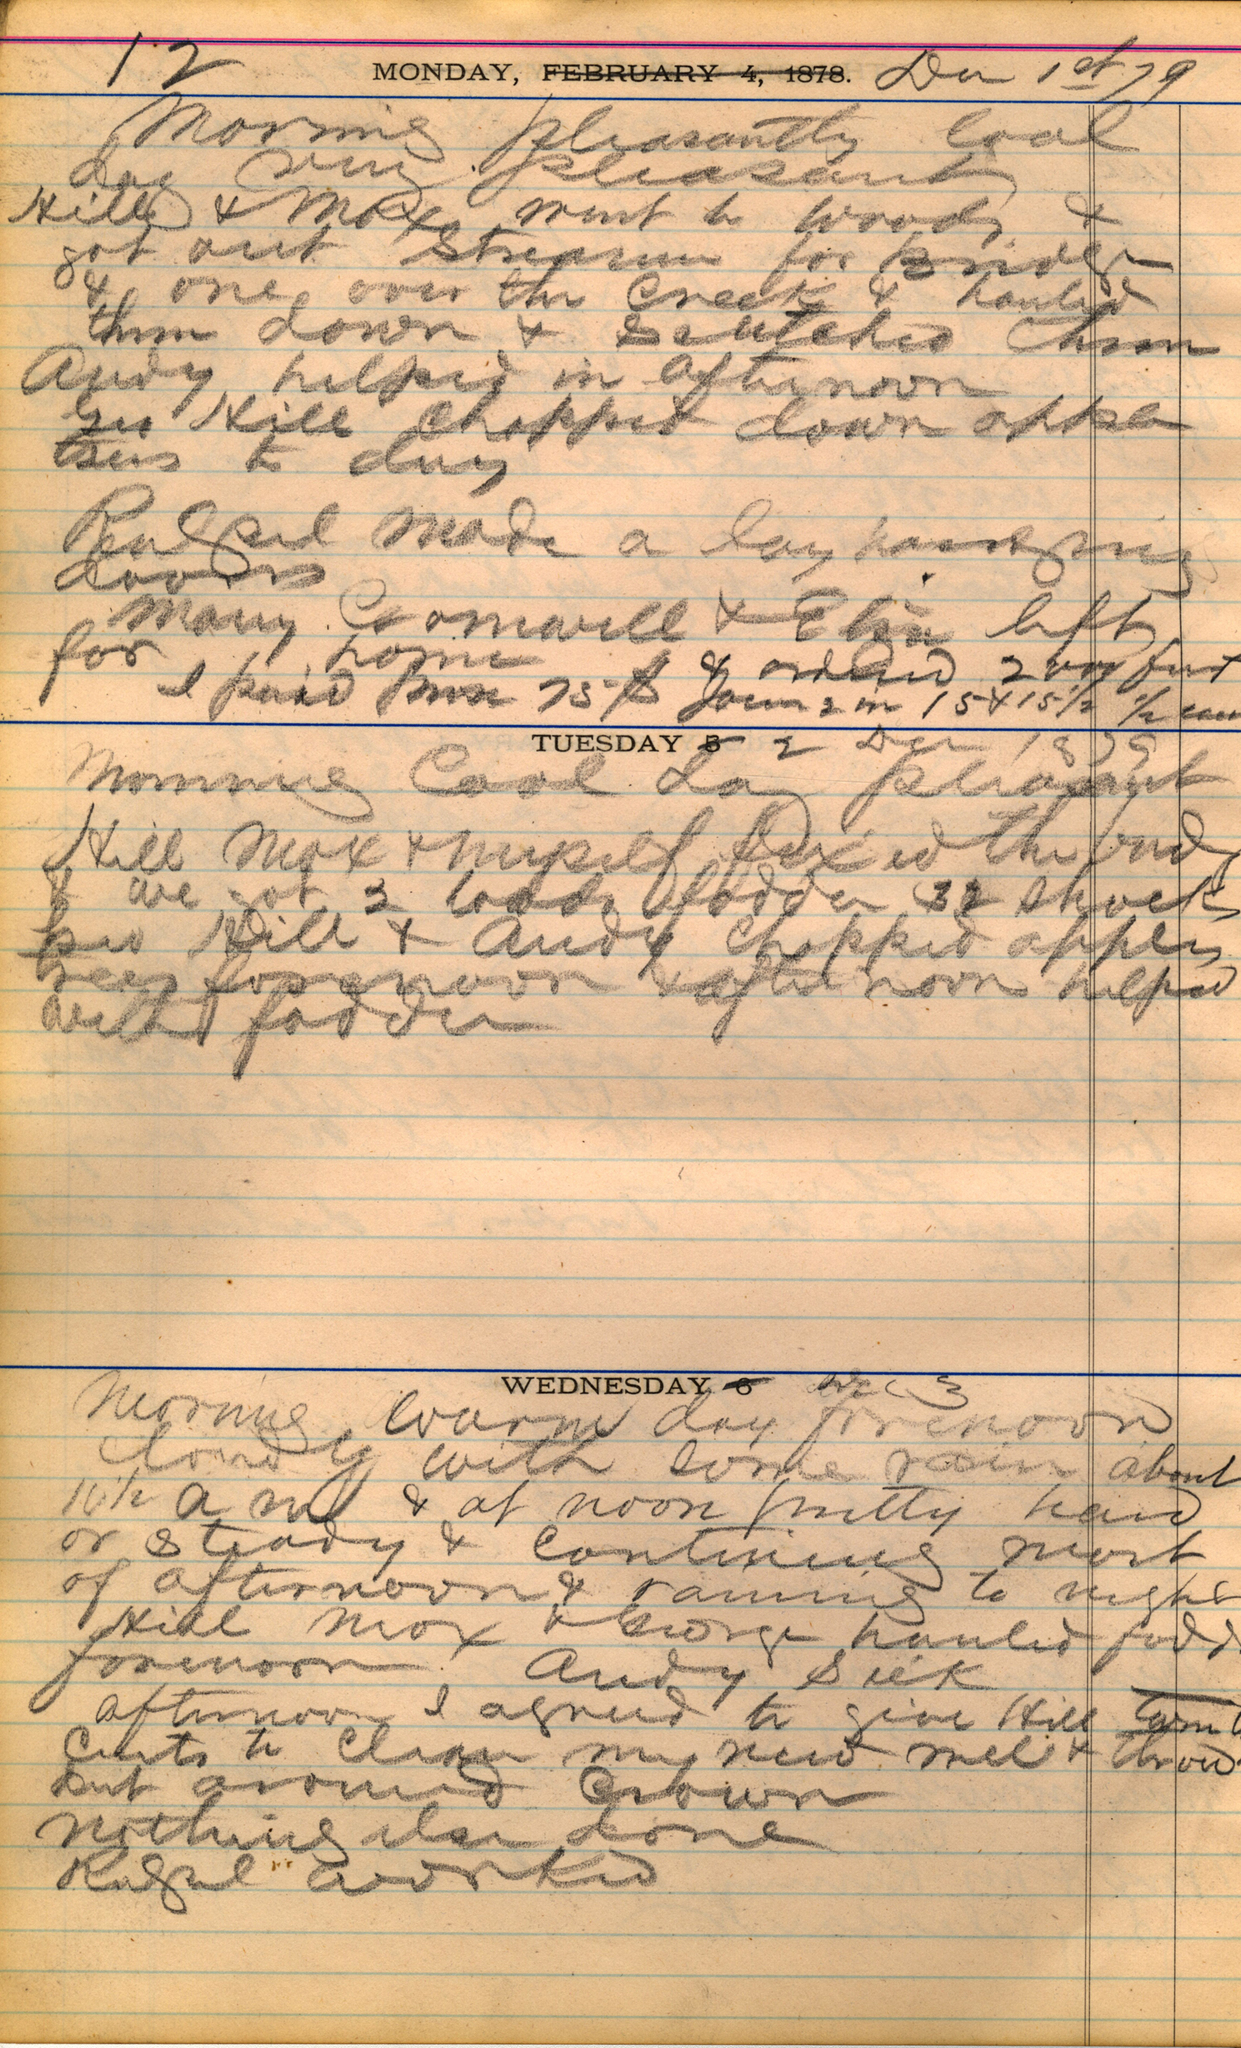 12
MONDAY, FEBRUARY 4, 1878. Dec 1st 79
Morning pleasantly cool
day very pleasant
Hill & Mox went to woods &
got out for Bridge
& one over the Creek & hauled
them down & Scutched them
Andy helped in afternoon
Geo Hill Chopped down apple
trees to day
made a day hanging
doors
Mary Cromwell & left
for home & ordered 2
I paid 75 $ 2 in 15 & 15 1/2 1/2
TUESDAY 5 2 Dec 1879
Morning Cool day pleasant
Hill Mox & myself fixed the
& we got 3 loads fodder 32 shocks
Geo Hill & Andy Chopped apple
trees forenoon & afternoon helped
with fodder
WEDNESDAY 6 Dec 3
Morning warm day forenoon
cloudy with some rain about
10 1/2 a m & at noon pretty hard
or steady & continuing most
of afternoon & raining to night
Hill Mox & George hauled fodd
forenoon Andy Sick
afternoon I agreed to give Hill
Cents to Clean my new & throw
dirt around
nothing else done
worked